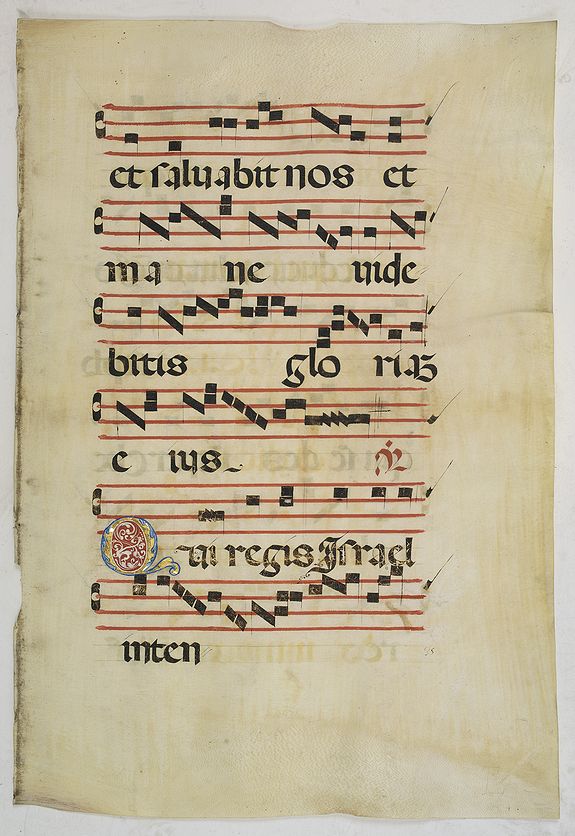 et saluabit nos et
ma ne uide
bitis glo riaʒ
e ius. ℣
Qui regis Israel
inten